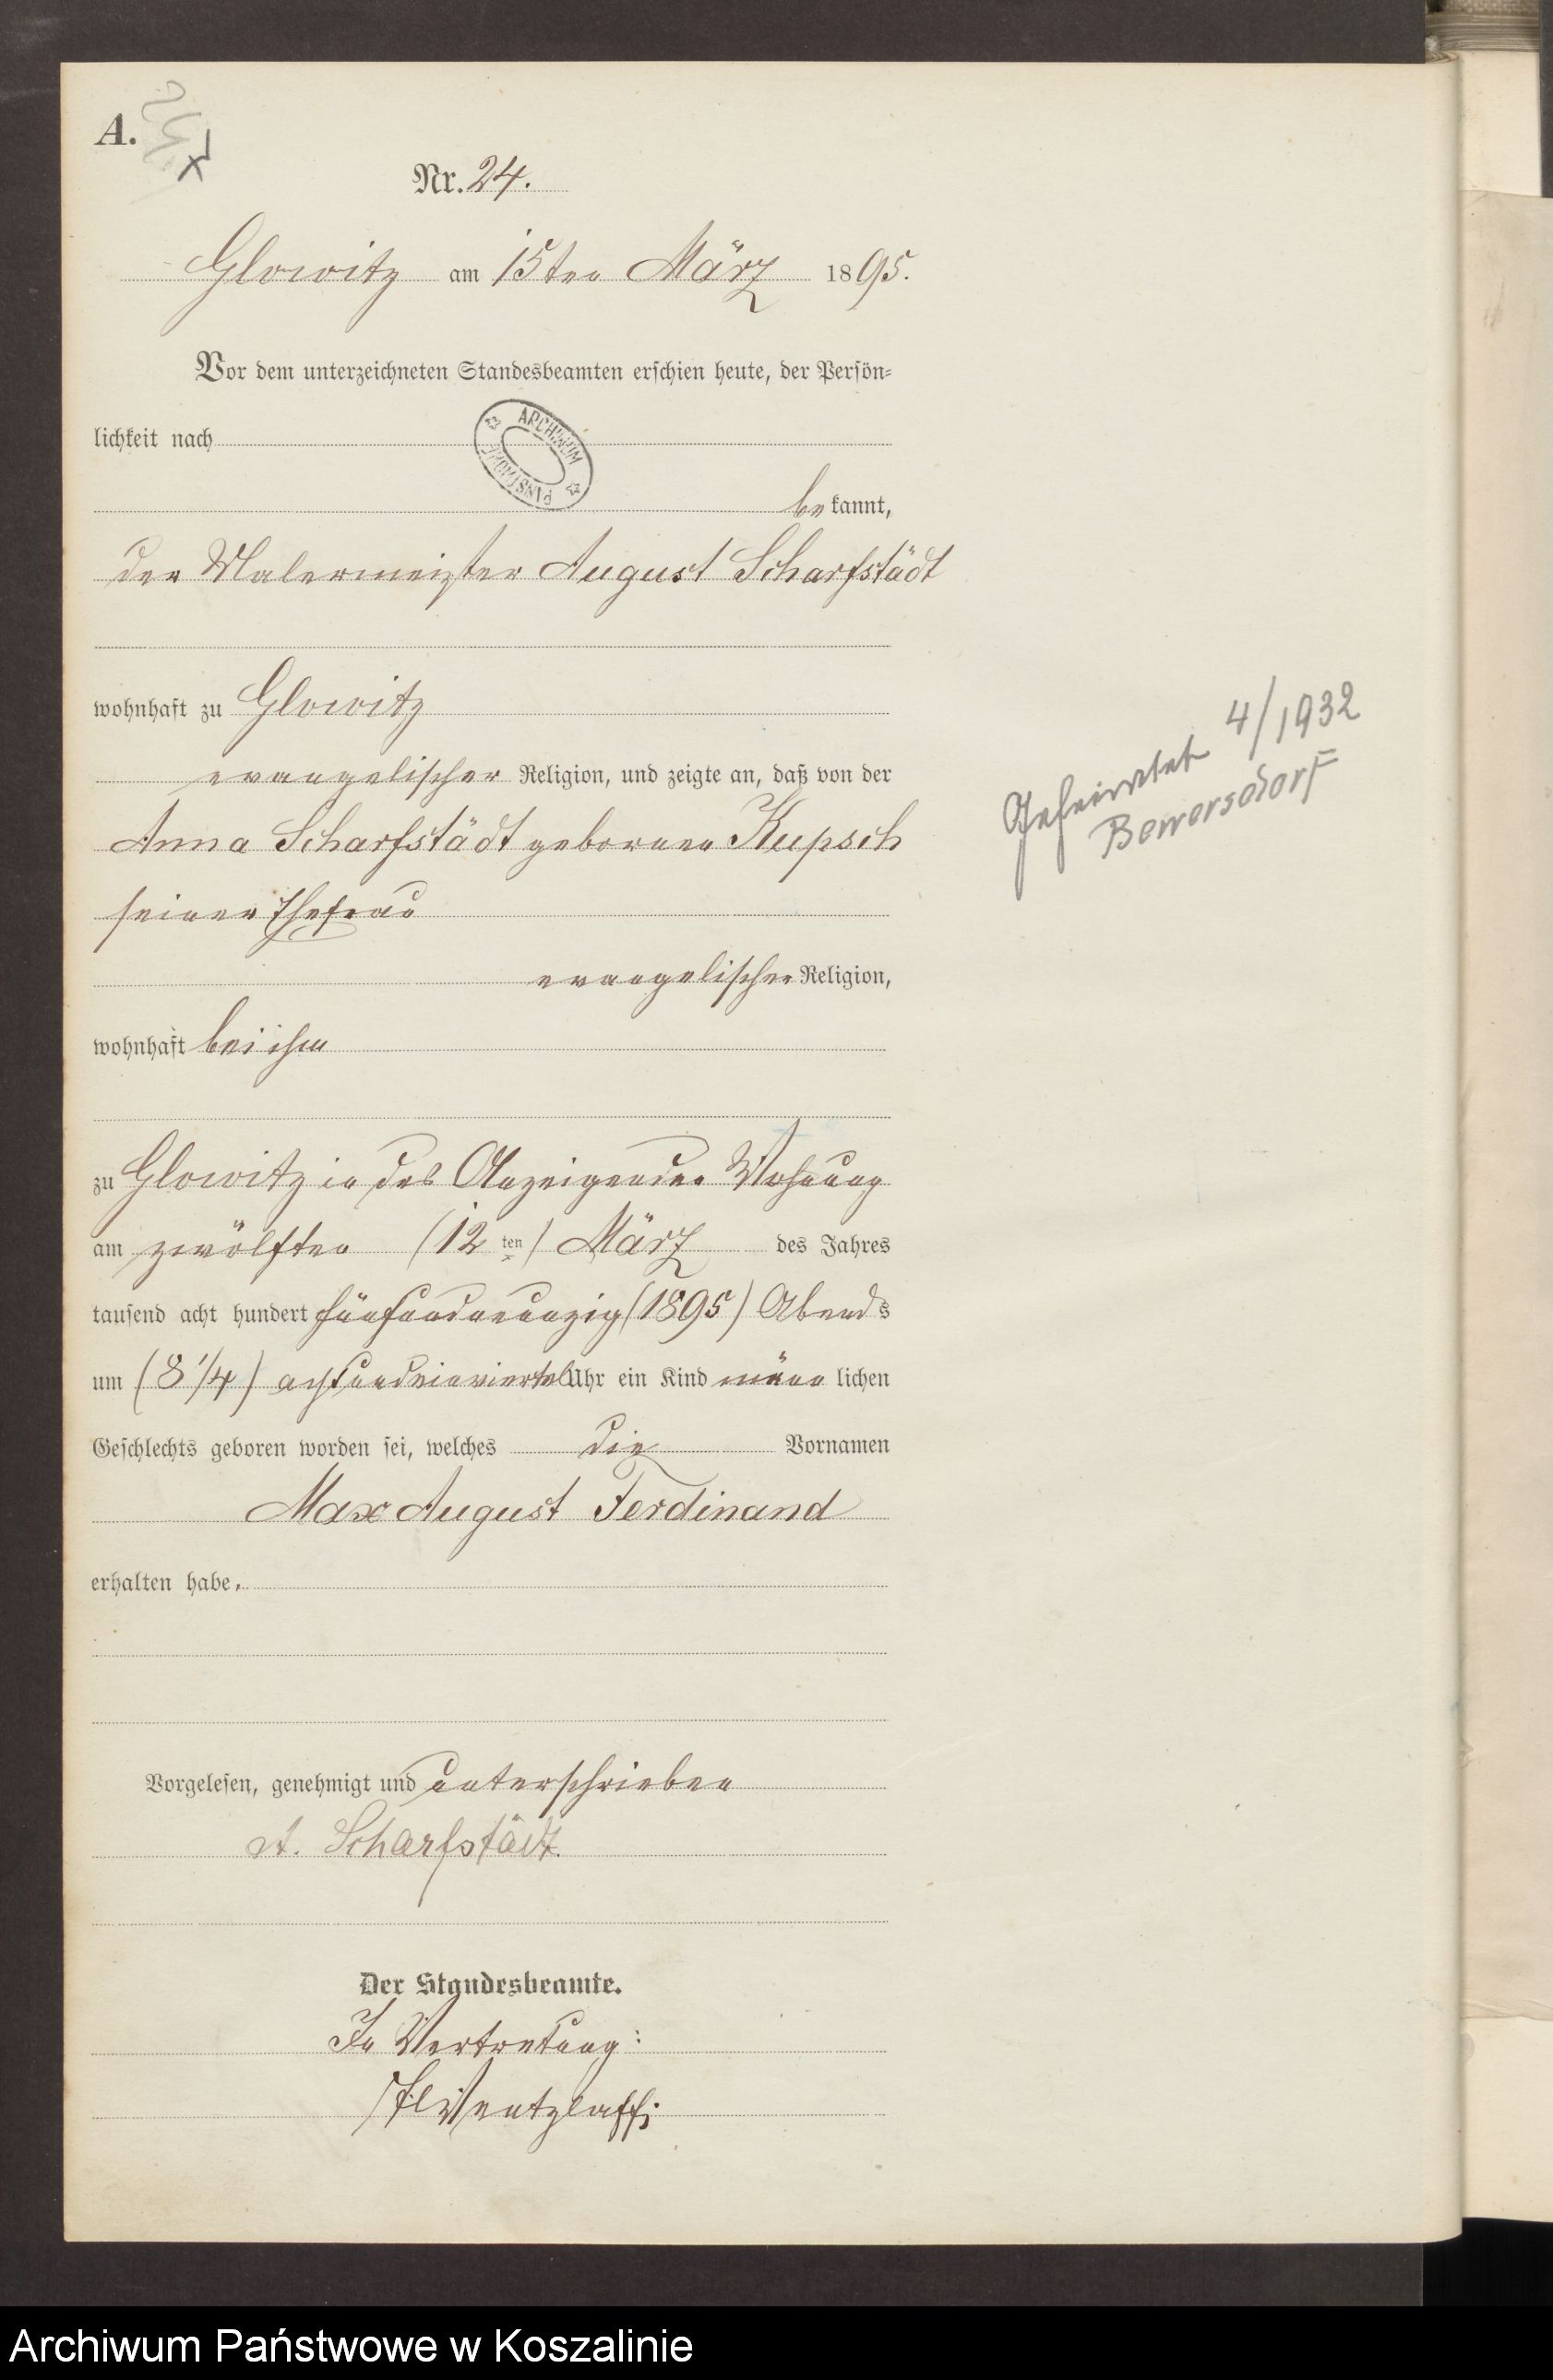 A.
Nr. 24.
Glowitz am 15ten März 1895.
Vor dem unterzeichneten Standesbeamten erschien heute, der Persön-
lichkeit nach
ARCHIWUM PAŃSTWOWE
bekannt,
der Malermeister August Scharfstädt
wohnhaft zu Glowitz
evangelischer Religion, und zeigte an, daß von der
Anna Scharfstädt geborenen Kupsch
seiner Ehefrau
evangelischer Religion,
wohnhaft bei ihm
zu Glowitz in des Anzeigenden Wohnung
am zwölften (12ten) März des Jahres
tausend acht hundert fünfundneunzig (1895) Abends
um (8 1/4) achtundeinviertel Uhr ein Kind männlichen
Geschlechts geboren worden sei, welches die Vornamen
Max August Ferdinand
erhalten habe.
Vorgelesen, genehmigt und unterschrieben
A. Scharfstädt.
Der Standesbeamte.
In Vertretung:
Wentzlaff
Geheiratet 4/1932
Bewersdorf
Archiwum Państwowe w Koszalinie